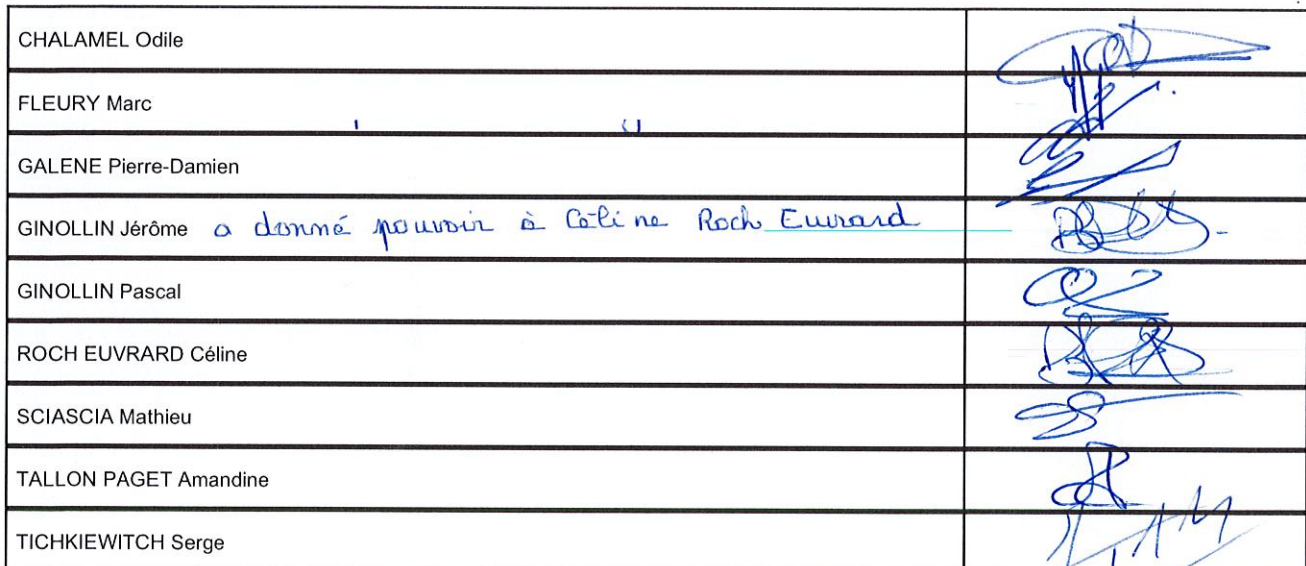 CHALAMEL Odile
FLEURY Marc
GALENE Pierre-Damien
GINOLLIN Jérôme a donné pouvoir à Céline Roch Euvrard
GINOLLIN Pascal
ROCH EUVRARD Céline
SCIASCIA Mathieu
TALLON PAGET Amandine
TICHKIEWITCH Serge